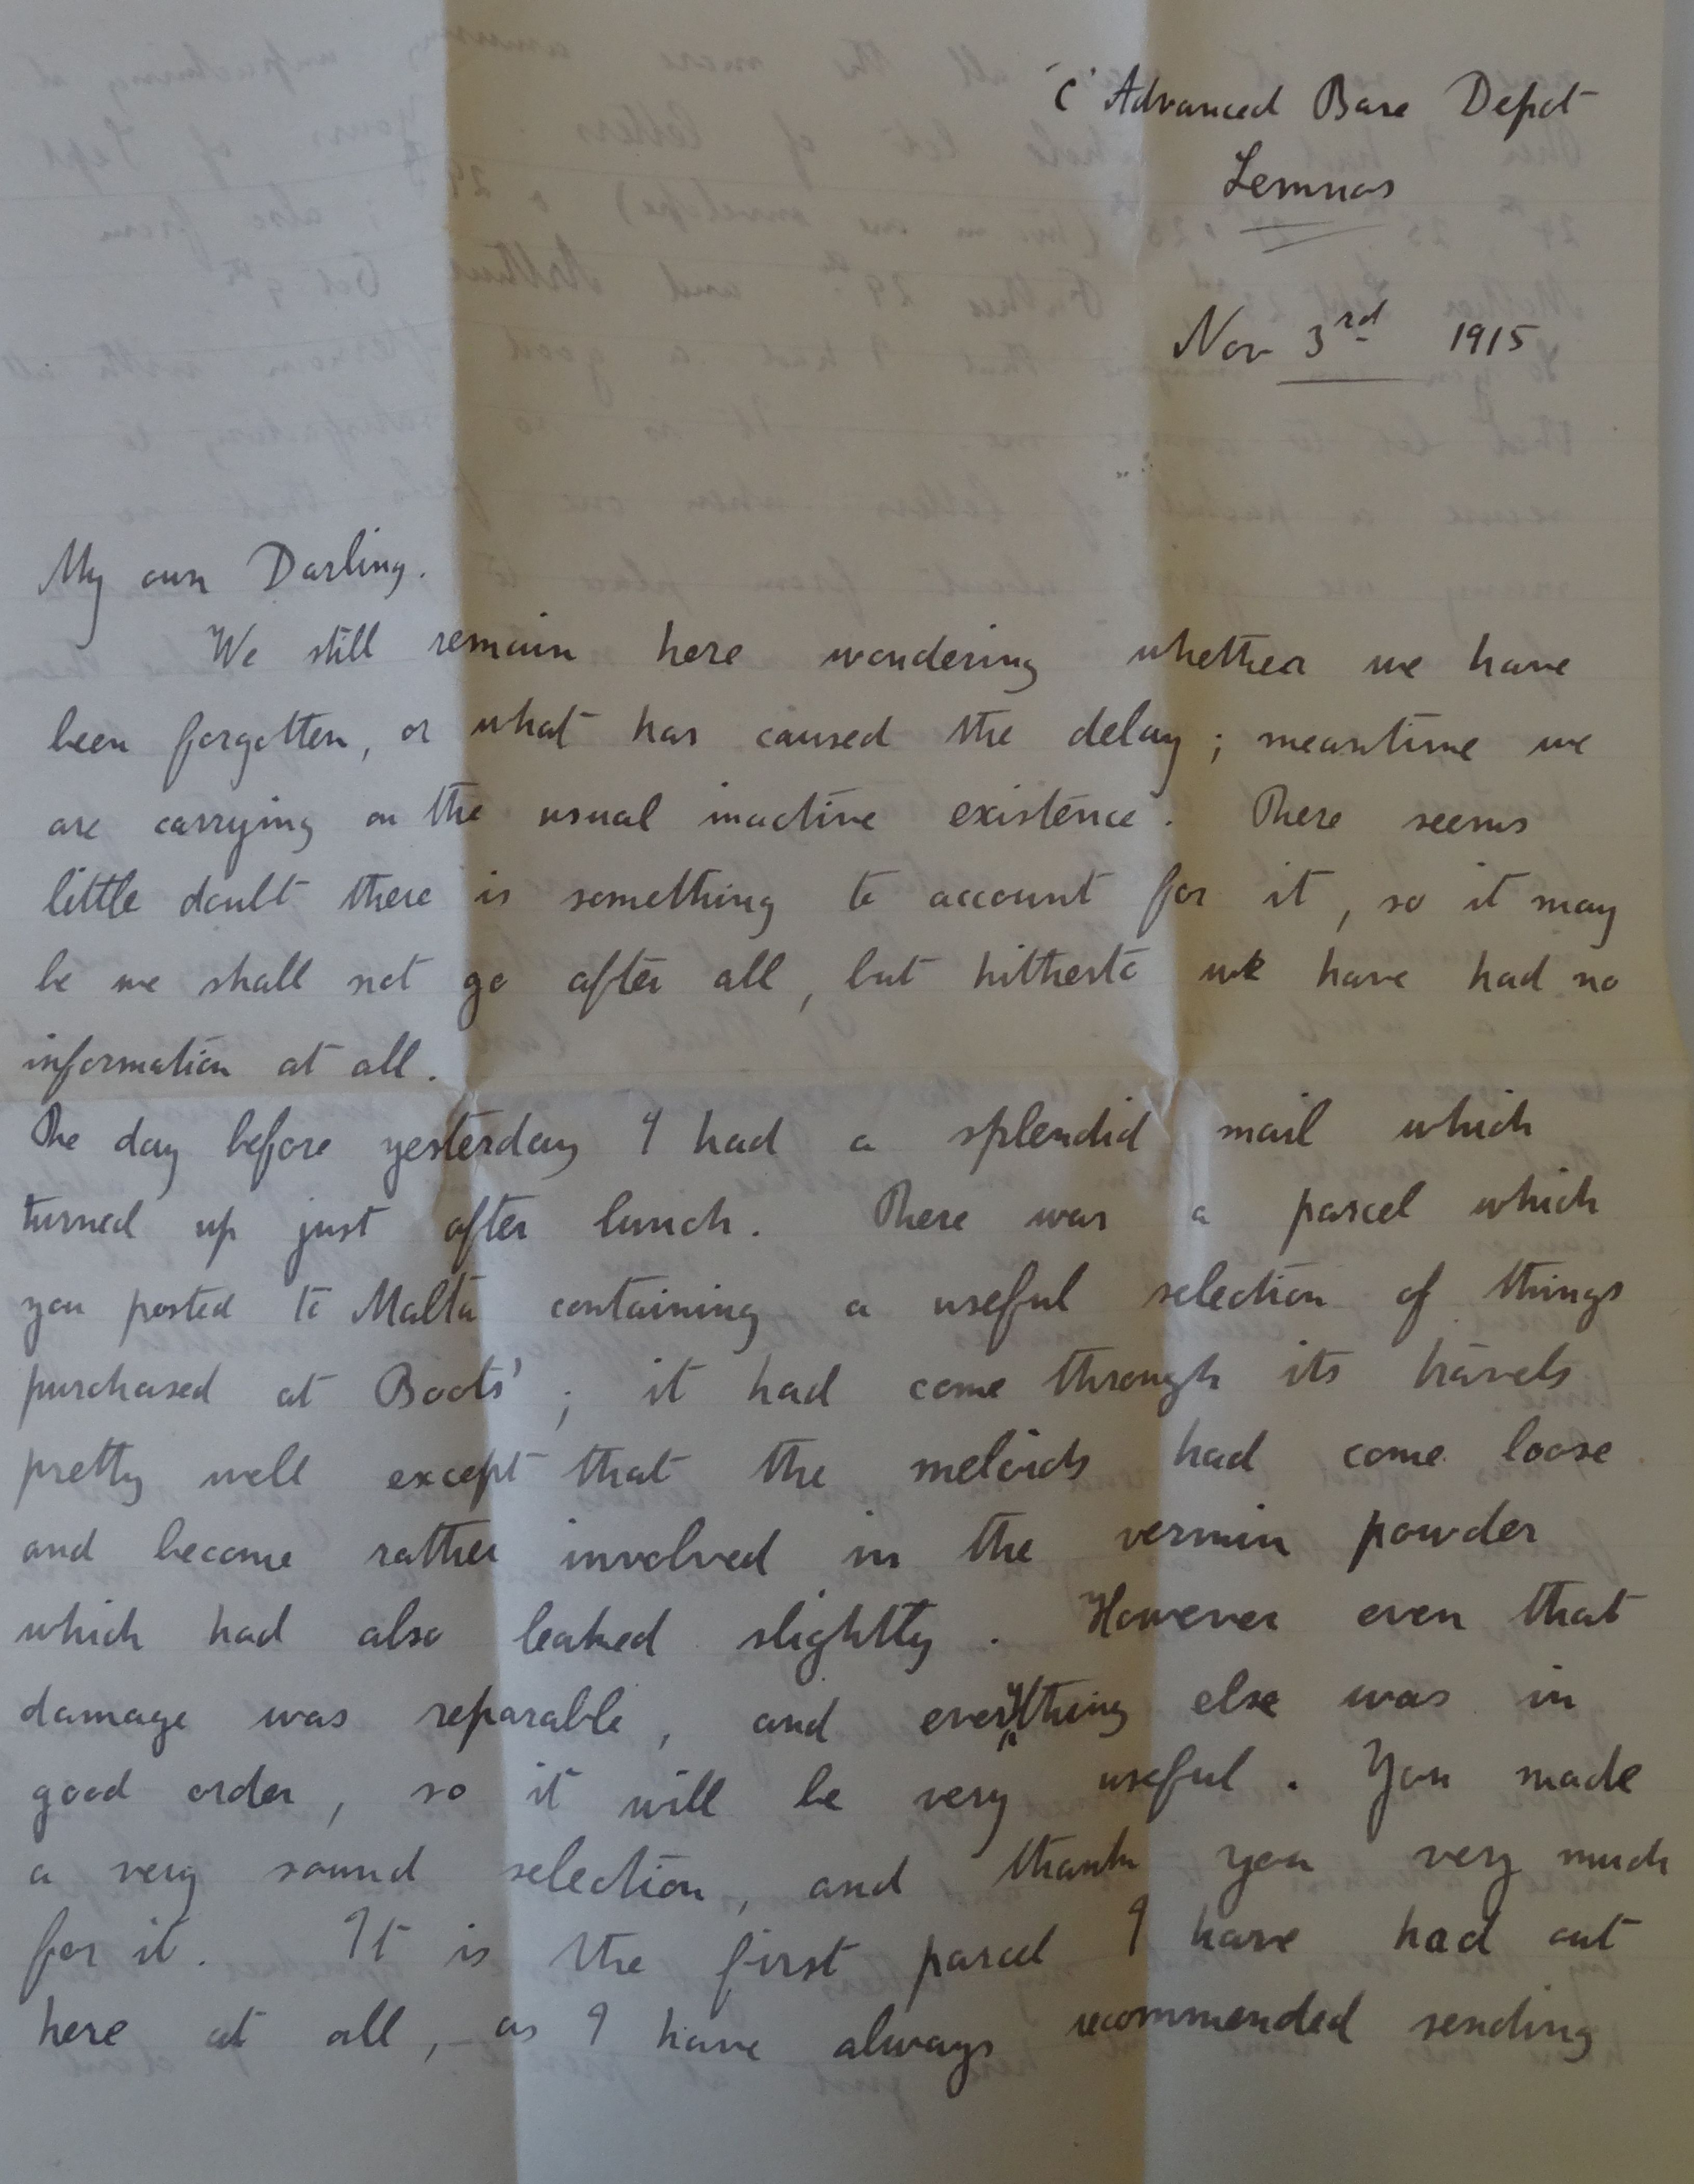 'C' Advanced Base Depot
Lemnos
Nov 3rd 1915
My own Darling.
We still remain here wondering whether we have
been forgotten, or what has caused the delay; meantime we
are carrying on the usual inactive existence. There seems
little doubt there is something to account for it, so it may
be we shall not go after all, but hitherto we have had no
information at all.
The day before yesterday I had a splendid mail which
turned up just after lunch. There was a parcel which
you posted to Malta containing a useful selection of things
purchased at Boots'; it had come through its travels
pretty well except that the meloids had come loose
and become rather involved in the vermin powder
which had also leaked slightly. However even that
damage was reparable, and everything else was in
good order, so it will be very useful. You made
a very sound selection, and thank you very much
for it. It is the first parcel I have had out
here at all, as I have always recommended sending